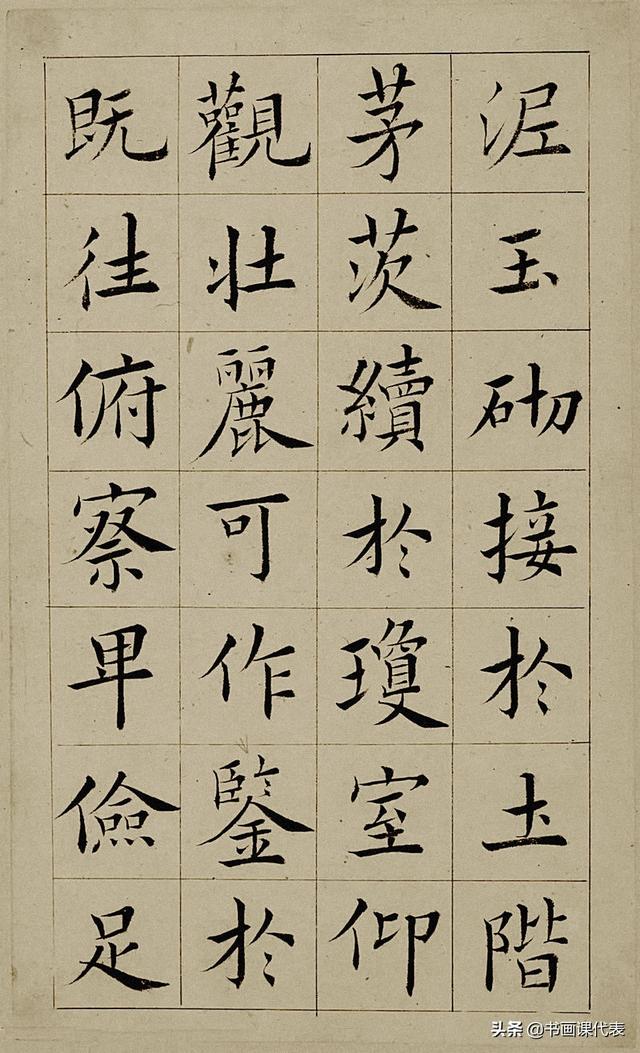 泥玉砌接於土階
茅茨續於瓊室仰
觀壯麗可作鑒於
既往俯察卑儉足
头条 @书画课代表